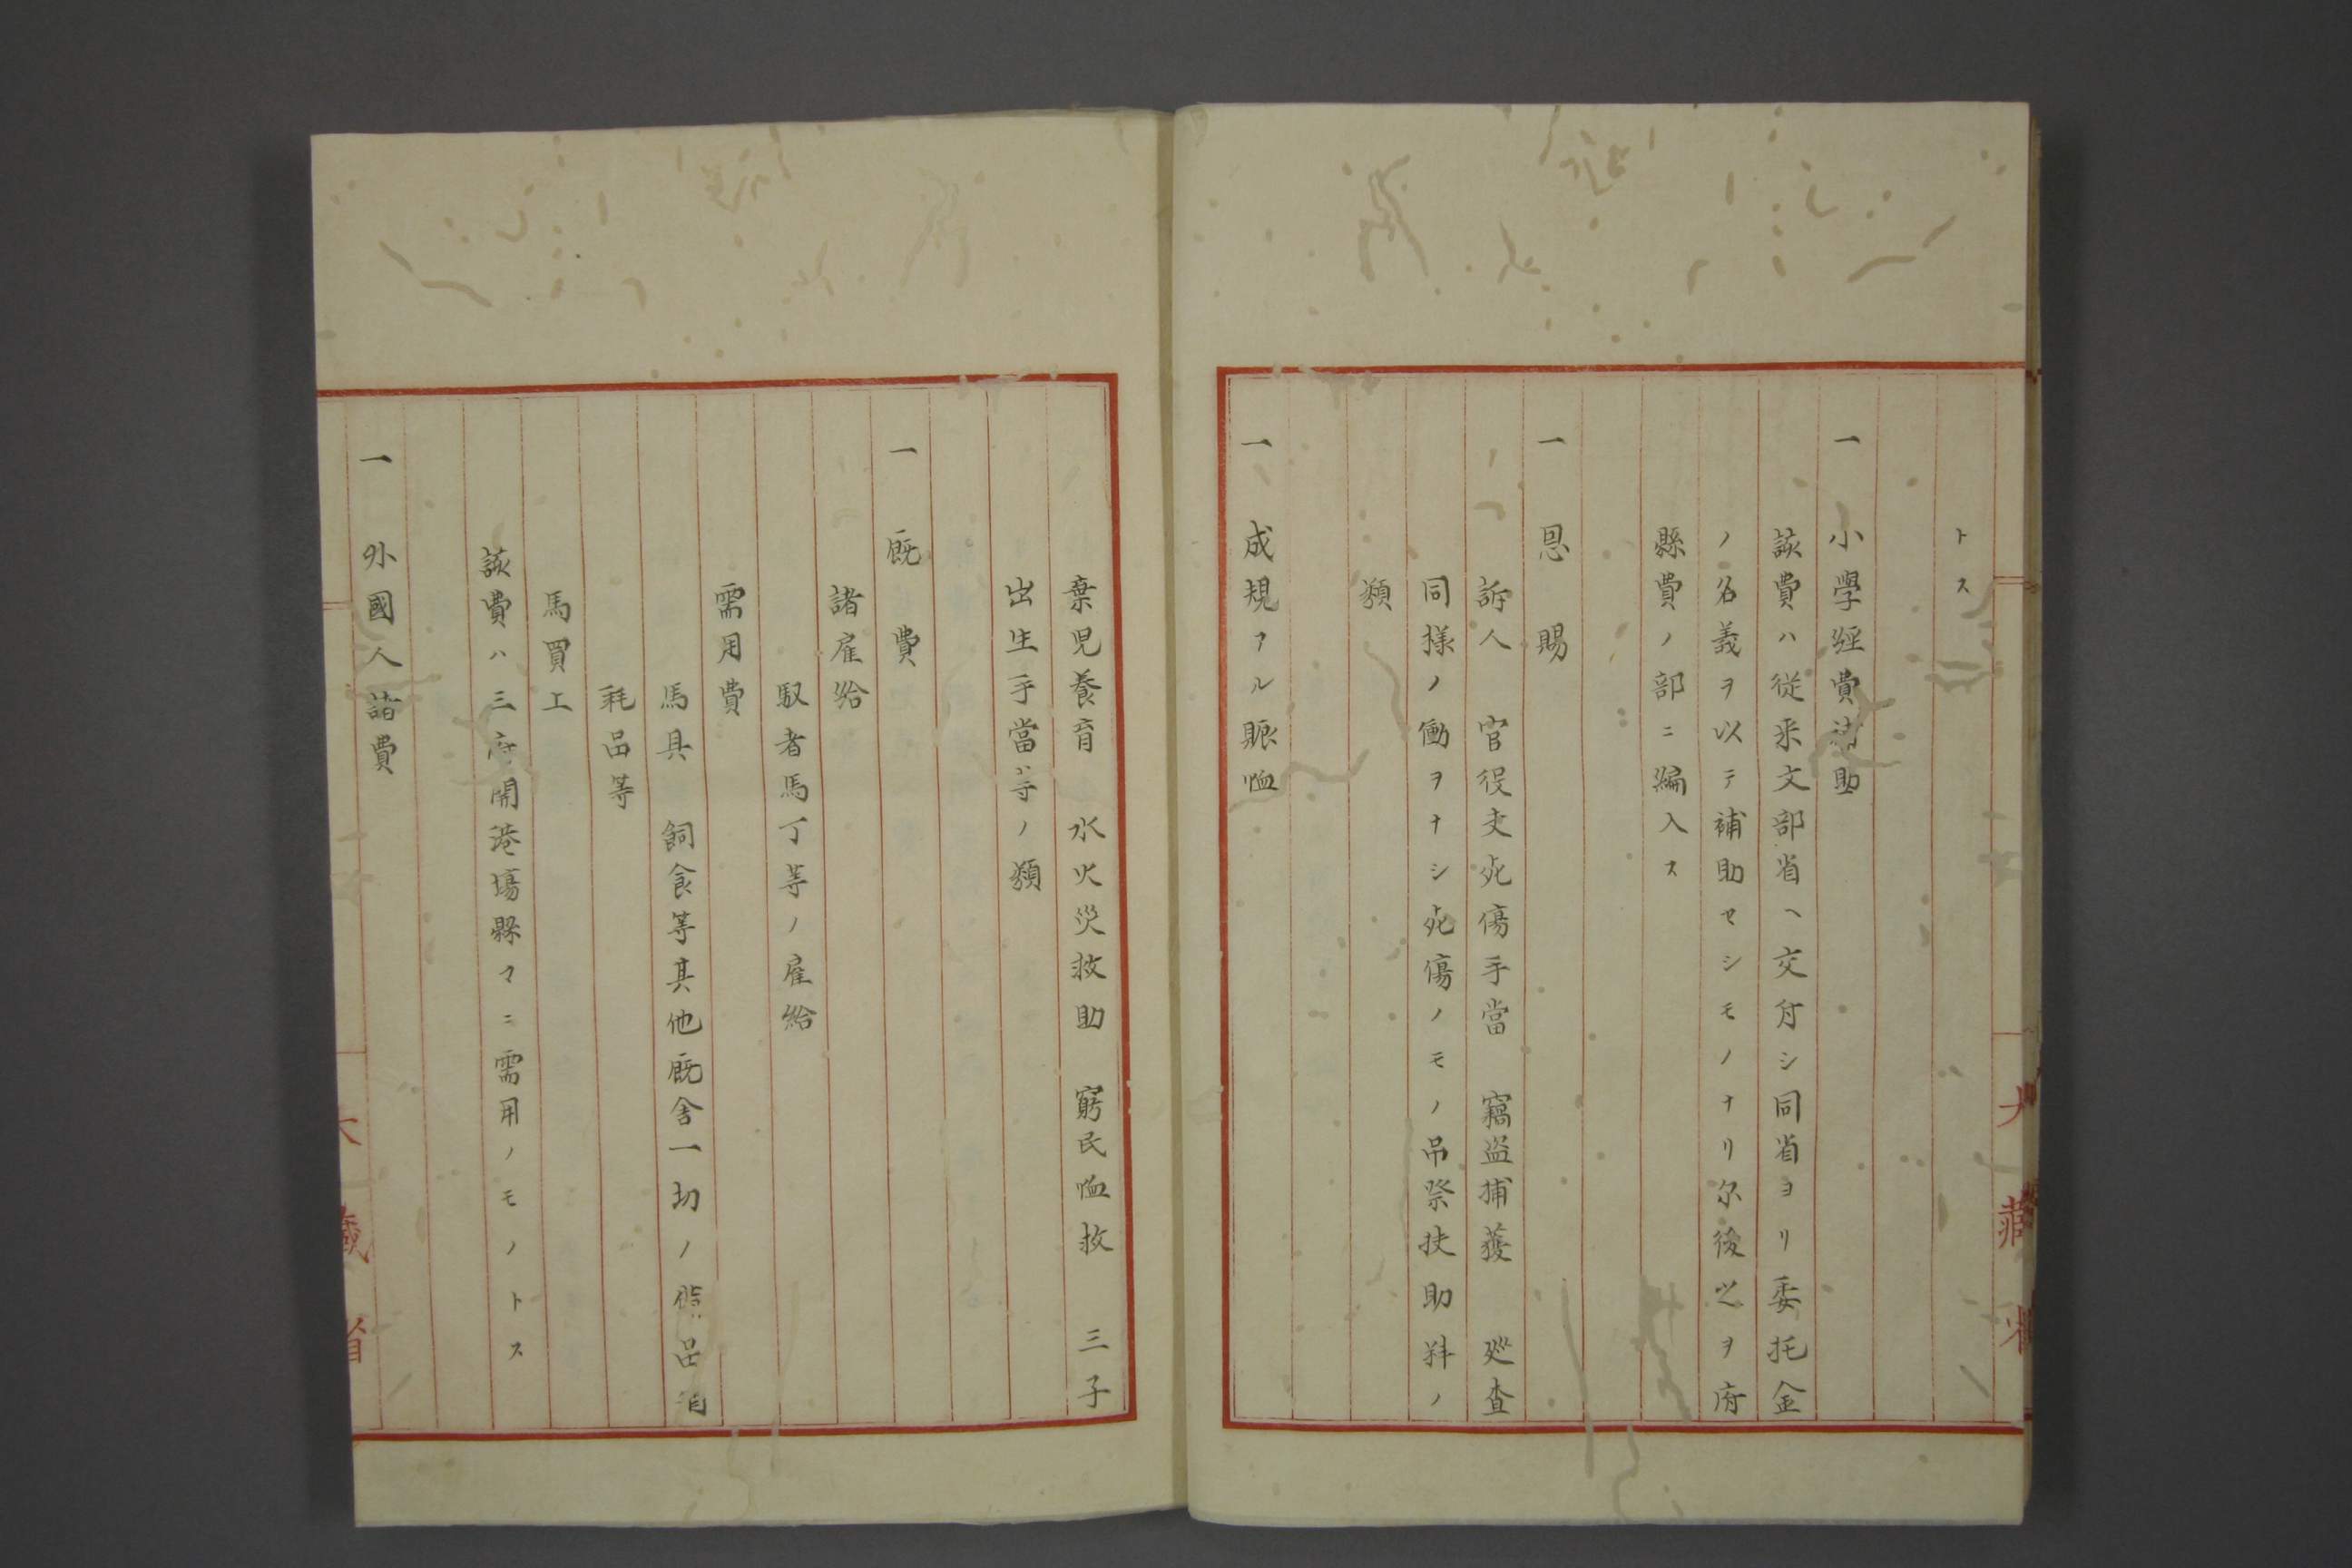 トス
一 小學經費補助
該費ハ従来文部省ヘ交付シ同省ヨリ委托金
ノ名義ヲ以テ補助セシモノナリ尓後之ヲ府
縣費ノ部ニ編入ス
一 恩賜
訴人 官役夫死傷手當 竊盗捕獲 廵査
同様ノ働ヲナシ死傷ノモノ吊祭扶助料ノ
類
一 成規アル賑恤
棄児養育 水火災救助 窮民恤救 三子
出生手當等ノ類
一 厩費
諸雇給
馭者馬丁等ノ雇給
需用費
馬具 飼食等其他厩舎一切ノ備品消
耗品等
馬買上
該費ハ三府開港場縣々ニ需用ノモノトス
一 外國人諸費
大藏省
大藏省